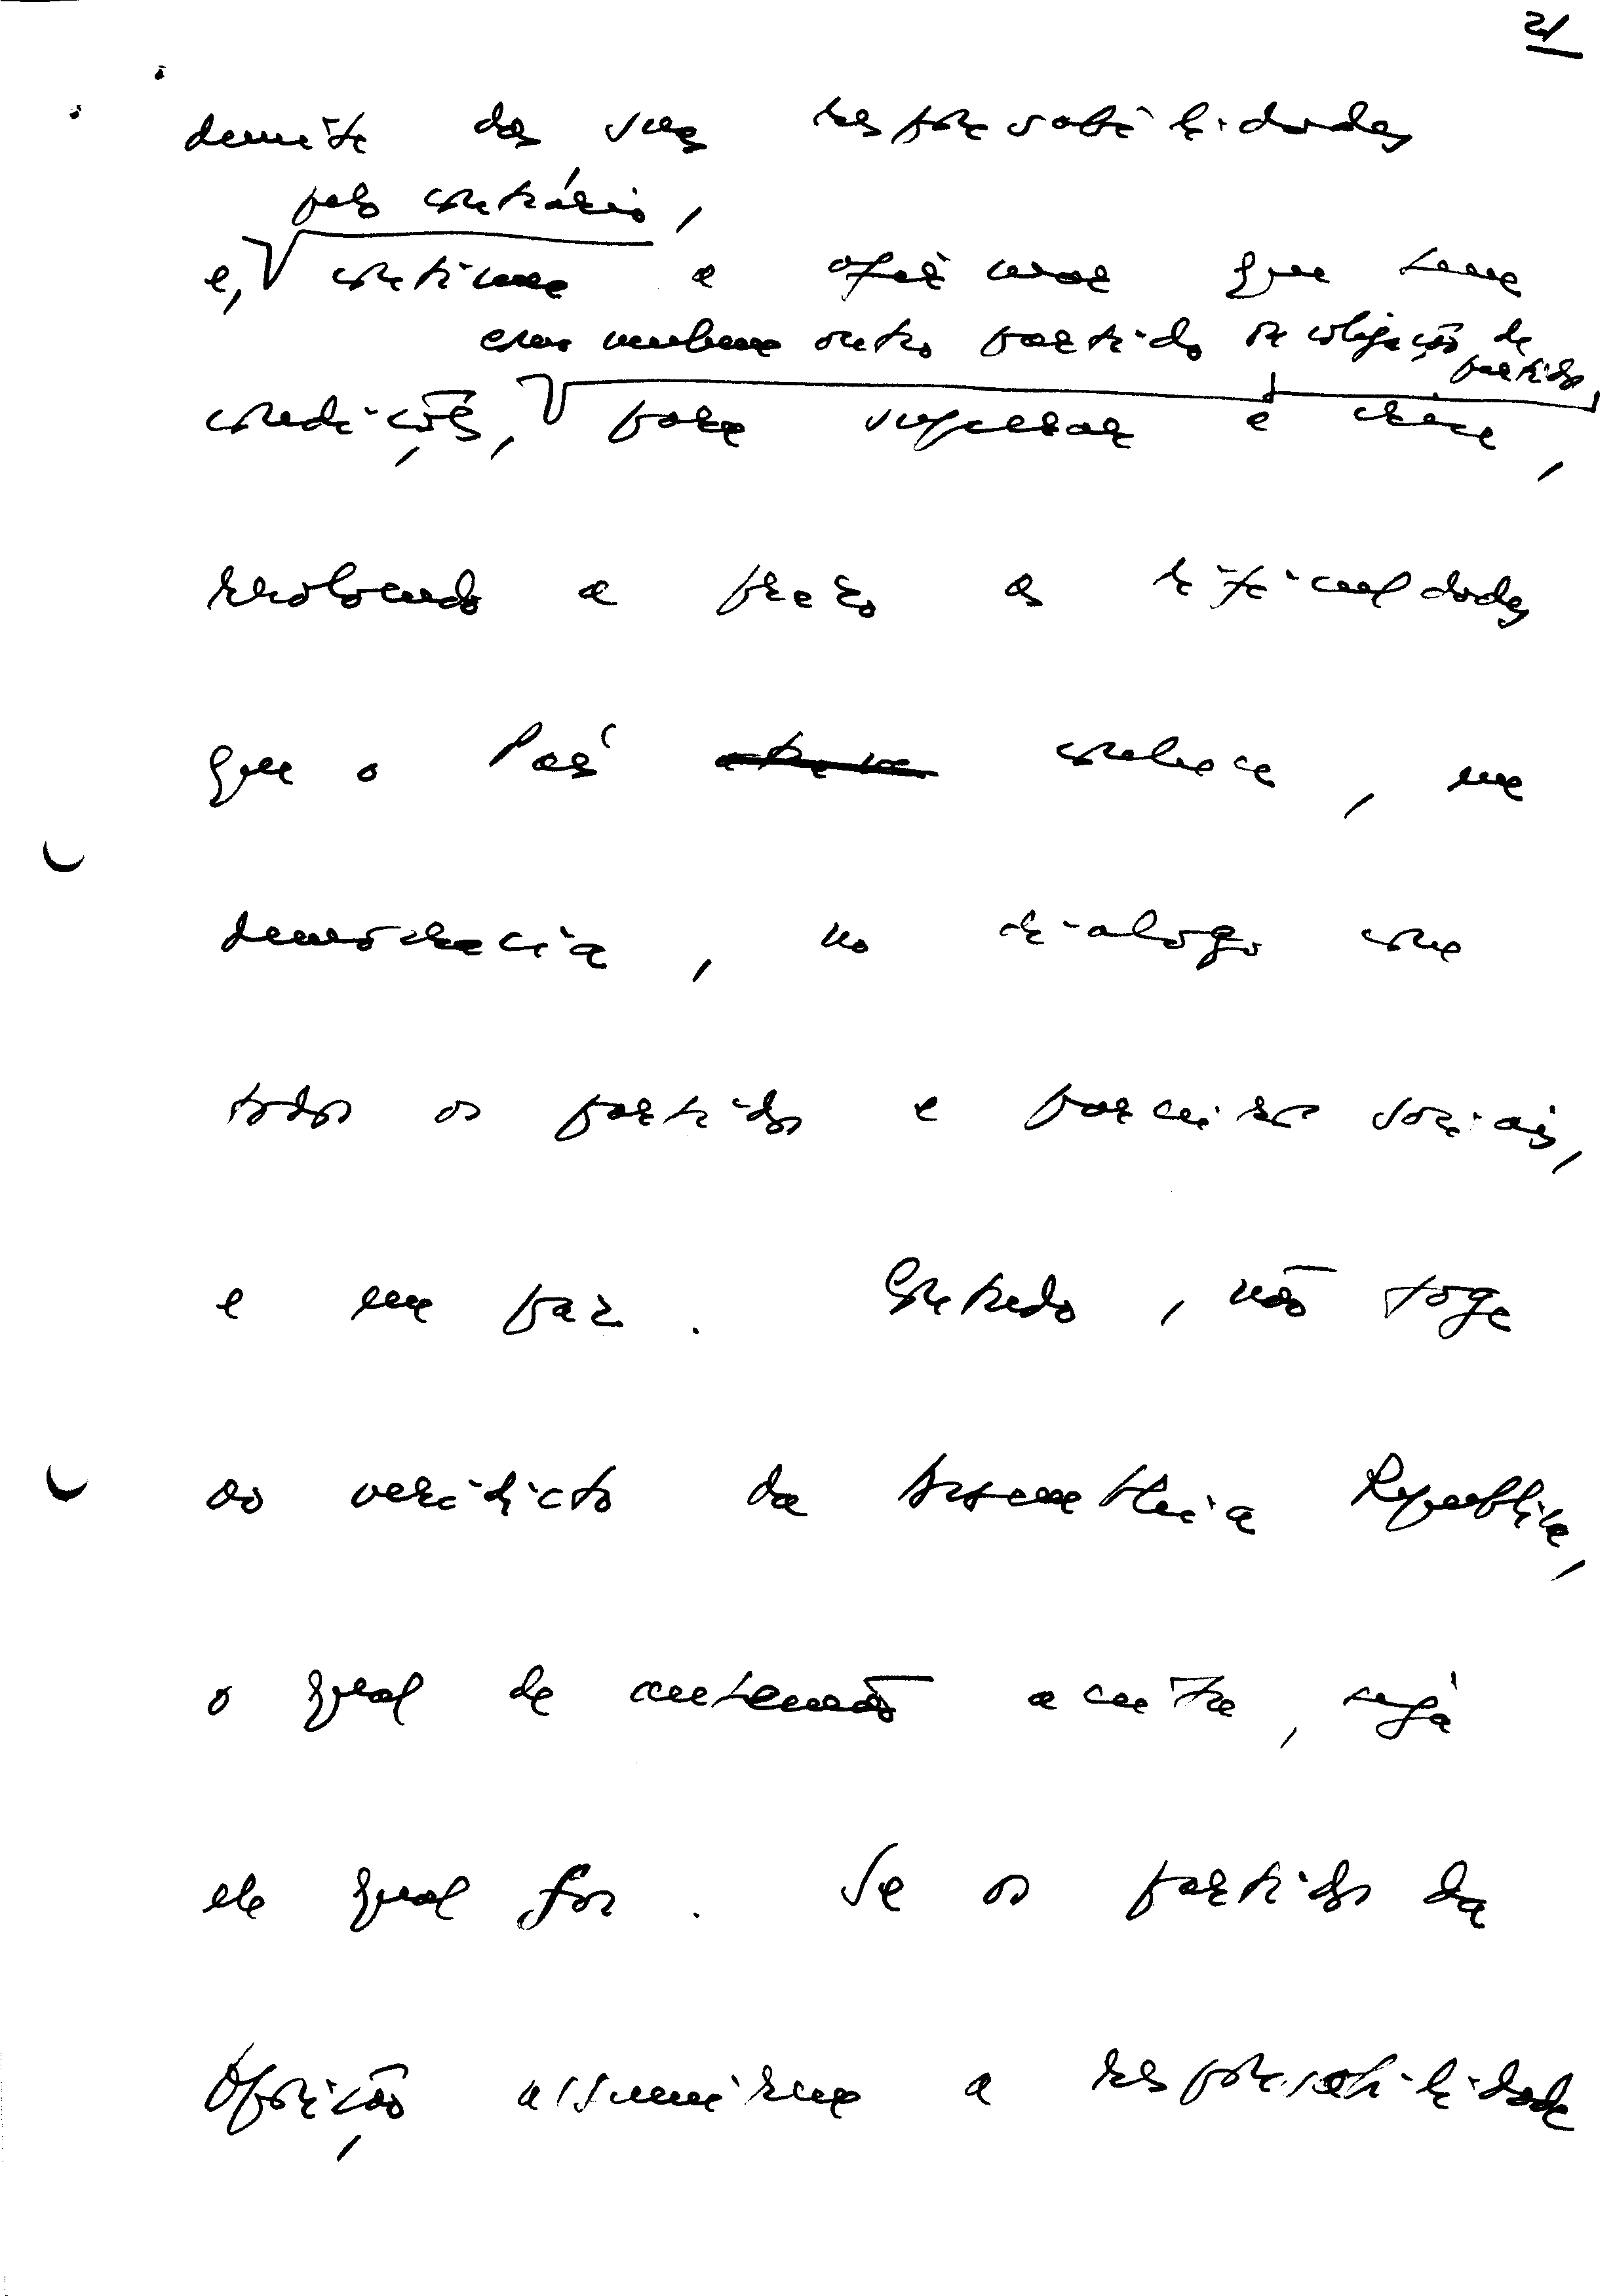 21
demite das suas responsabilidades
pelo contrário,
e, continua a afirmar que tem
como nenhum outro partido ou coligação de partidos,
condições, para superar a crise,
resolvendo a prazo as dificuldades
que o País conhece, em
democracia, no dialogo com
todos os partidos e parceiros sociais,
e em paz. Contudo, não foge
ao veridicto da Assembleia República,
o qual de antemão aceita, seja
ele qual for. Se os partidos da
Oposição assumirem a responsabilidade